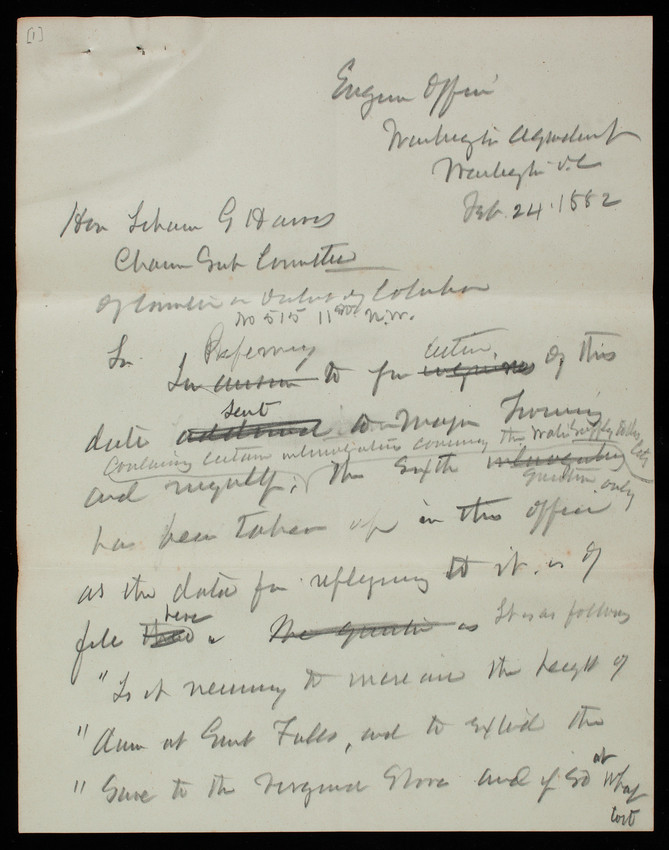 [1]
Engineer Office
Washington Aqueduct
Washington D.C.
Feb. 24. 1882
Hon Isham G Harris
Chairn Sub Committee
of Committee on District of Columbia
No 515 11th N.W.
Sir
Referring
In answer to your letter, of this
date sent addressed to Major Twining
Containing certain interrogatories concerning the water supply to this City
and myself, the sixth interrogatory
question only
has been taken up in this office
as the data for replying to it is of
file there here. The question is It is as follows
"Is it necessary to increase the height of
"dam at Great Falls, and to extend the
"same to the Virginia Shore and if so at what
cost